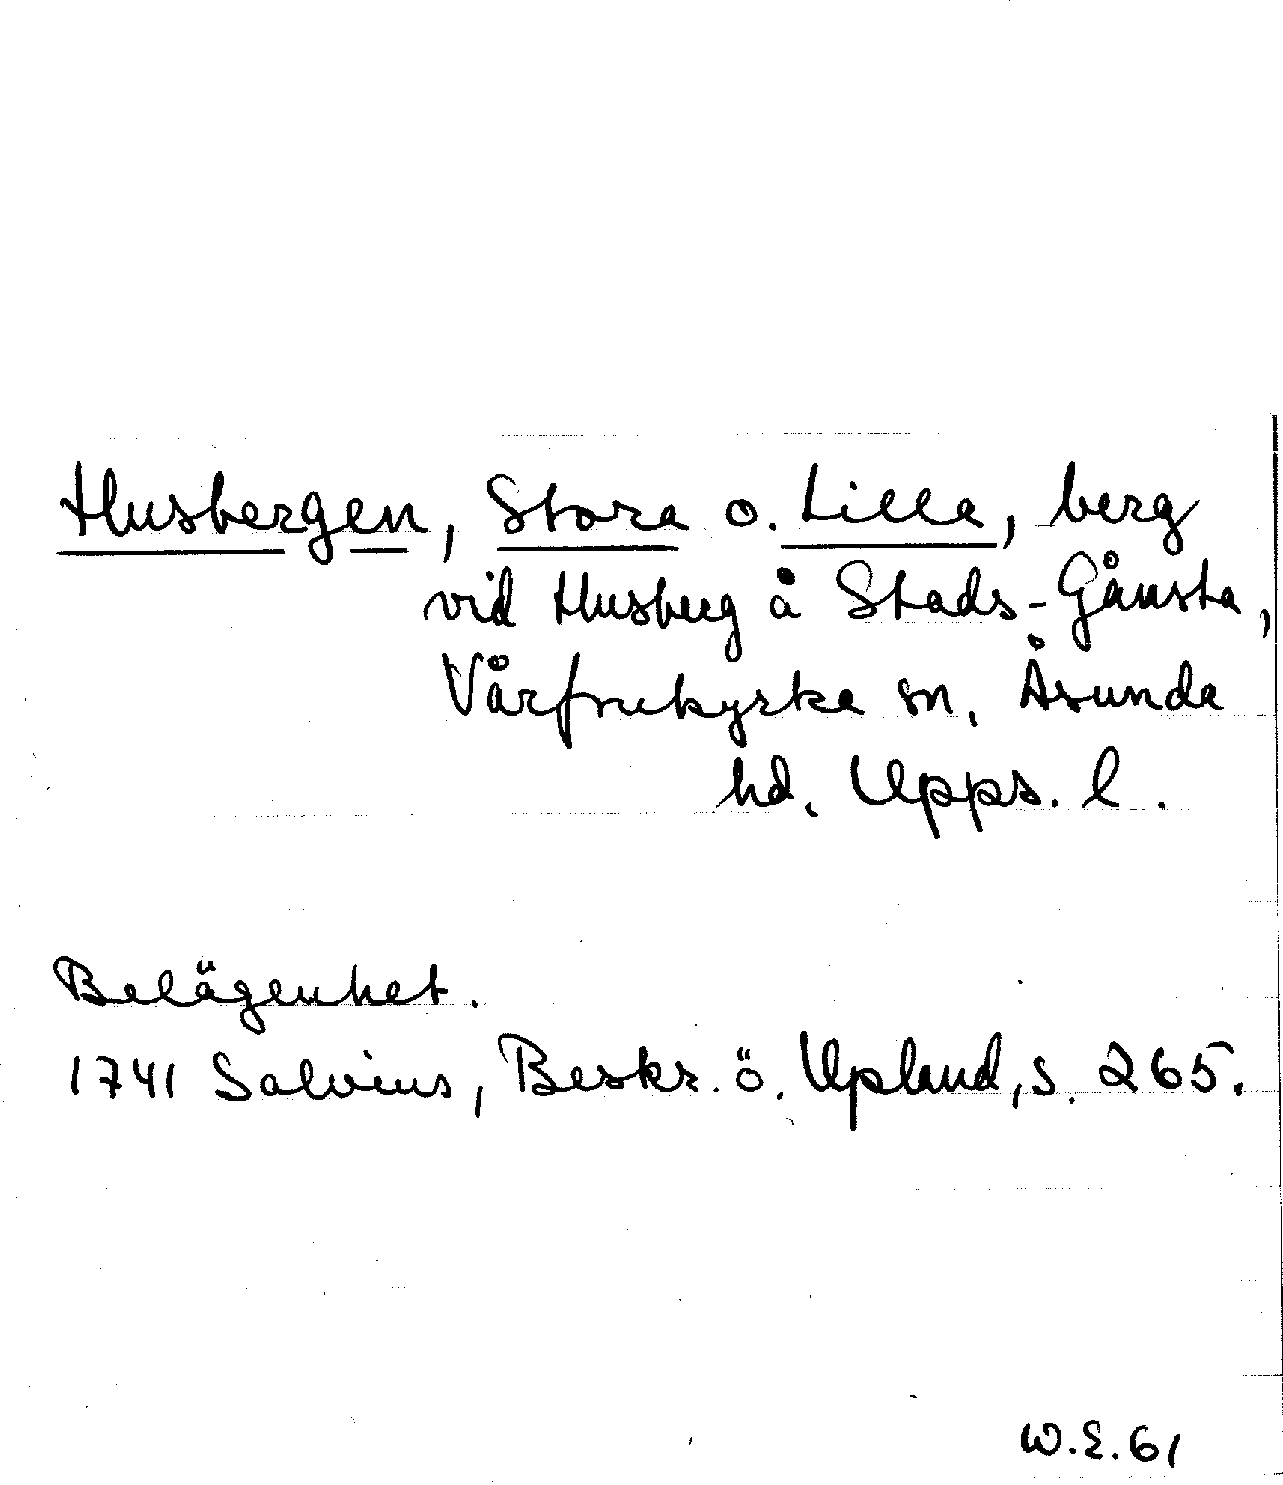 Husbergen, Stora o. Lilla, berg
vid Husberg å Stads-Gånsta,
Vårfrukyrka sn, Åsunda
hd, Upps. l.
Belägenhet.
1741 Salvius, Beskr. ö. Upland, s. 265.
W.E. 61